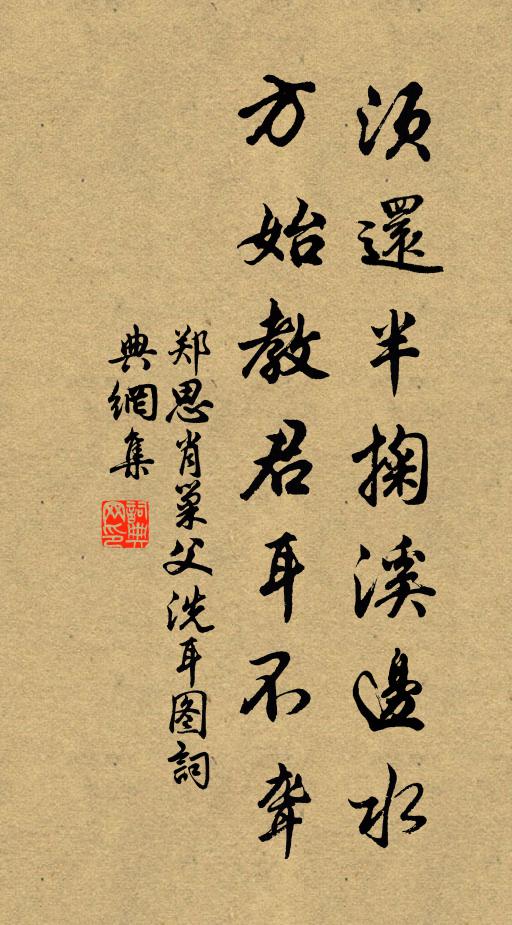 须還半掬溪邊水
方始教君耳不聋
郑思肖巢父洗耳图詞
典網集
詞典网印